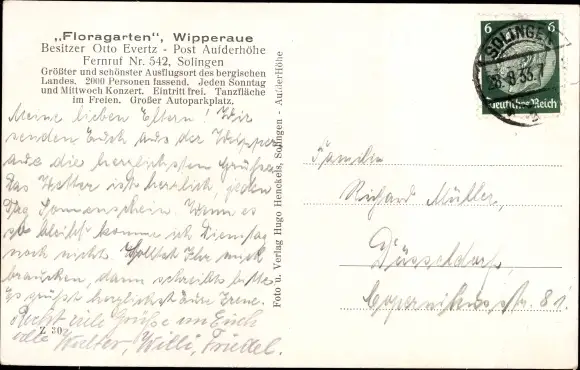 „Floragarten“, Wipperaue
Besitzer Otto Evertz - Post Aufderhöhe
Fernruf Nr. 542, Solingen
Größter und schönster Ausflugsort des bergischen
Landes. 2000 Personen fassend. Jeden Sonntag
und Mittwoch Konzert. Eintritt frei. Tanzfläche
im Freien. Großer Autoparkplatz.
Meine lieben Eltern! Wir
senden Euch aus der Wipper
aue die herrlichsten Grüße.
Das Wetter ist herrlich, jeden
Tag Sonnenschein. Wenn es
so bleibt komme ich Dienstag
noch nicht. Solltet Ihr mich
brauchen, dann schreibt bitte.
Es grüßt herzlichst Eure Irene.
Recht viele Grüße an Euch
alle Walter, Willi, Friedel.
Z 302
Foto u. Verlag Hugo Henckels, Solingen - Aufderhöhe
6 6
Deutsches Reich
SOLINGEN
Familie
Richard Müller,
Düsseldorf,
Copernikusstr. 81.